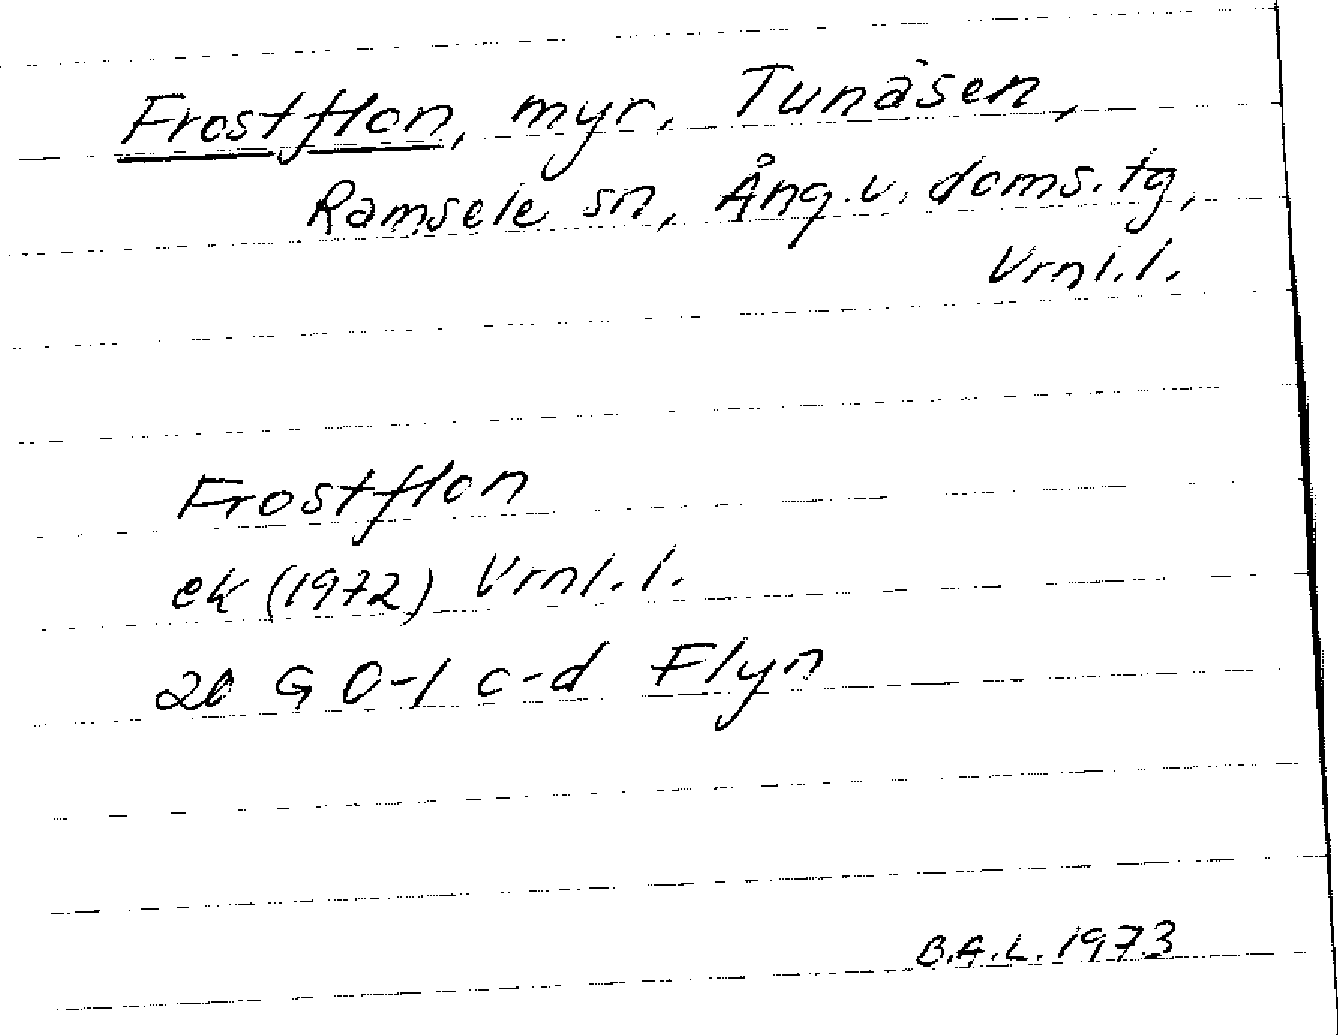 Frostflon, myr, Tunåsen,
Ramsele sn, Ång.v. doms.tg,
Vrnl.l.
Frostflon
ek (1972) Vrnl.l.
20 G 0-1 c-d Flyn
B.A.L. 1973